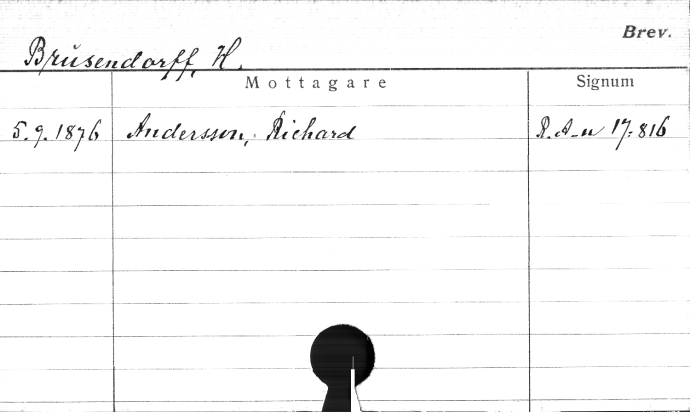 Brev.
Brusendorff, H.
Mottagare Signum
5.9.1876 Andersson, Richard R.A-n 17:816